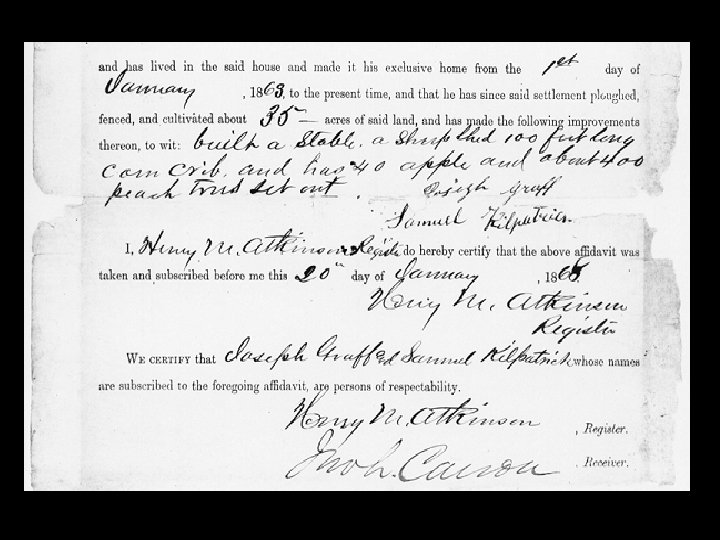 and has lived in the said house and made it his exclusive home from the 1st day of
January, 1863, to the present time, and that he has since said settlement ploughed,
fenced, and cultivated about 35 — acres of said land, and has made the following improvements
thereon, to wit: built a Stable, a Sheep Shed 100 feet long
Corn Crib, and has 40 apple and about 400
peach trees set out.
Joseph Graff
Samuel Kilpatrick
I, Henry M. Atkinson Register do hereby certify that the above affidavit was
taken and subscribed before me this 20th day of January, 1868.
Henry M. Atkinson
Register
WE CERTIFY that Joseph Graff & Samuel Kilpatrick whose names
are subscribed to the foregoing affidavit, are persons of respectability.
Henry M. Atkinson, Register.
Jno L. Carson, Receiver.